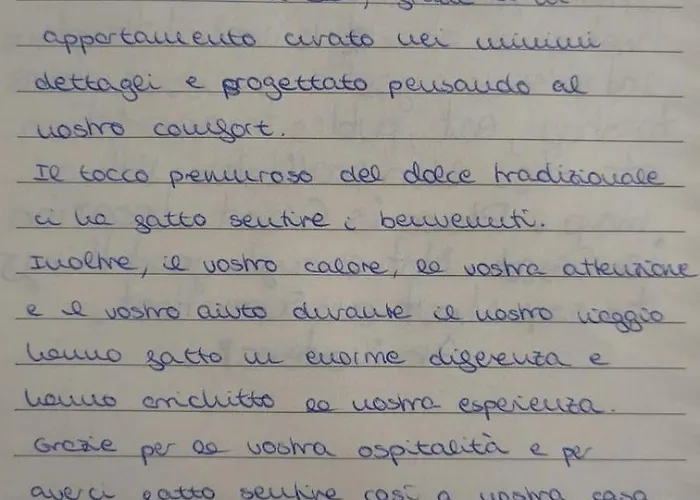 appartamento curato nei minimi
dettagli e progettato pensando al
nostro comfort.
Il tocco premuroso del dolce tradizionale
ci ha fatto sentire i benvenuti.
Inoltre, il vostro calore, la vostra attenzione
e il vostro aiuto durante il nostro viaggio
hanno fatto un enorme differenza e
hanno arricchitto la nostra esperienza.
Grazie per la vostra ospitalità e per
averci fatto sentire così a nostra casa